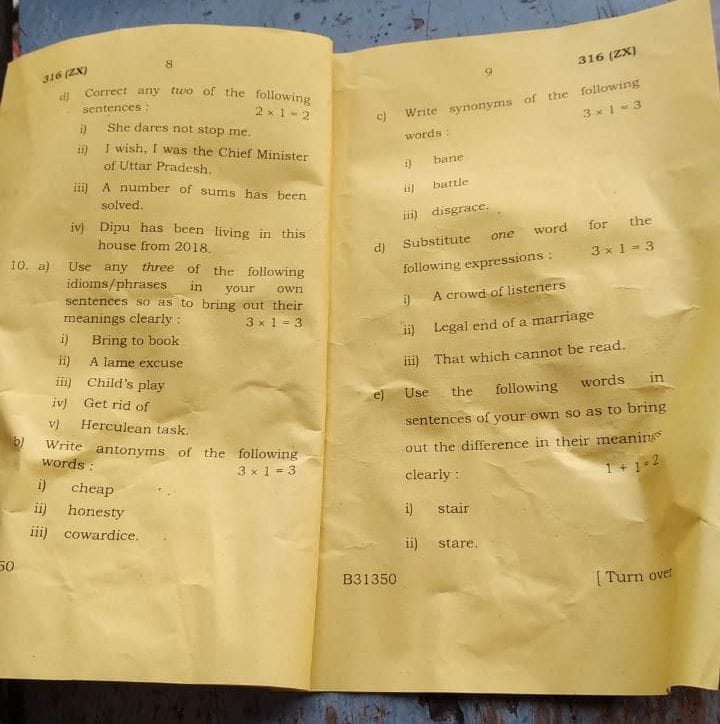 316 (ZX)
8
d) Correct any two of the following
sentences : 2 × 1 = 2
i) She dares not stop me.
ii) I wish, I was the Chief Minister
of Uttar Pradesh.
iii) A number of sums has been
solved.
iv) Dipu has been living in this
house from 2018.
10. a) Use any three of the following
idioms/phrases in your own
sentences so as to bring out their
meanings clearly : 3 × 1 = 3
i) Bring to book
ii) A lame excuse
iii) Child's play
iv) Get rid of
v) Herculean task.
b) Write antonyms of the following
words : 3 × 1 = 3
i) cheap
ii) honesty
iii) cowardice.
50
9
316 (ZX)
c) Write synonyms of the following
words : 3 × 1 = 3
i) bane
ii) battle
iii) disgrace.
d) Substitute one word for the
following expressions : 3 × 1 = 3
i) A crowd of listeners
ii) Legal end of a marriage
iii) That which cannot be read.
e) Use the following words in
sentences of your own so as to bring
out the difference in their meanings
clearly : 1 + 1 = 2
i) stair
ii) stare.
B31350
[ Turn over